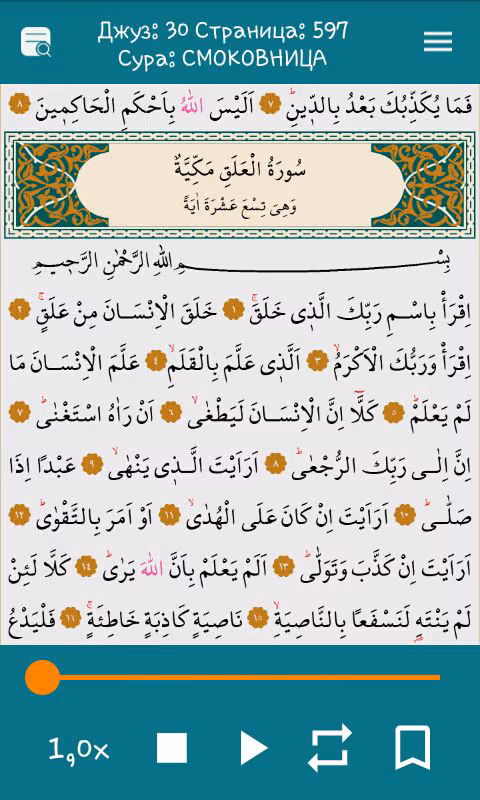 Джуз: 30 Страница: 597
Сура: СМОКОВНИЦА
فَمَا يُكَذِّبُكَ بَعْدُ بِالدّ۪ينِۜ ﴿٧﴾ اَلَيْسَ اللّٰهُ بِاَحْكَمِ الْحَاكِم۪ينَ ﴿٨﴾
سُورَةُ الْعَلَقِ مَكِّيَّةٌ
وَهِيَ تِسْعَ عَشْرَةَ اٰيَةً
بِسْمِ اللّٰهِ الرَّحْمٰنِ الرَّح۪يمِ
اِقْرَأْ بِاسْمِ رَبِّكَ الَّذ۪ي خَلَقَۚ ﴿١﴾ خَلَقَ الْاِنْسَانَ مِنْ عَلَقٍۚ ﴿٢﴾
اِقْرَأْ وَرَبُّكَ الْاَكْرَمُۙ ﴿٣﴾ اَلَّذ۪ي عَلَّمَ بِالْقَلَمِۙ ﴿٤﴾ عَلَّمَ الْاِنْسَانَ مَا
لَمْ يَعْلَمْۜ ﴿٥﴾ كَلَّٓا اِنَّ الْاِنْسَانَ لَيَطْغٰىۙ ﴿٦﴾ اَنْ رَاٰهُ اسْتَغْنٰىۜ ﴿٧﴾
اِنَّ اِلٰى رَبِّكَ الرُّجْعٰىۜ ﴿٨﴾ اَرَاَيْتَ الَّذ۪ي يَنْهٰىۙ ﴿٩﴾ عَبْدًا اِذَا
صَلّٰىۜ ﴿١٠﴾ اَرَاَيْتَ اِنْ كَانَ عَلَى الْهُدٰىۙ ﴿١١﴾ اَوْ اَمَرَ بِالتَّقْوٰىۜ ﴿١٢﴾
اَرَاَيْتَ اِنْ كَذَّبَ وَتَوَلّٰىۜ ﴿١٣﴾ اَلَمْ يَعْلَمْ بِاَنَّ اللّٰهَ يَرٰىۜ ﴿١٤﴾ كَلَّا لَئِنْ
لَمْ يَنْتَهِ لَنَسْفَعًا بِالنَّاصِيَةِۙ ﴿١٥﴾ نَاصِيَةٍ كَاذِبَةٍ خَاطِئَةٍۚ ﴿١٦﴾ فَلْيَدْعُ
1,0x